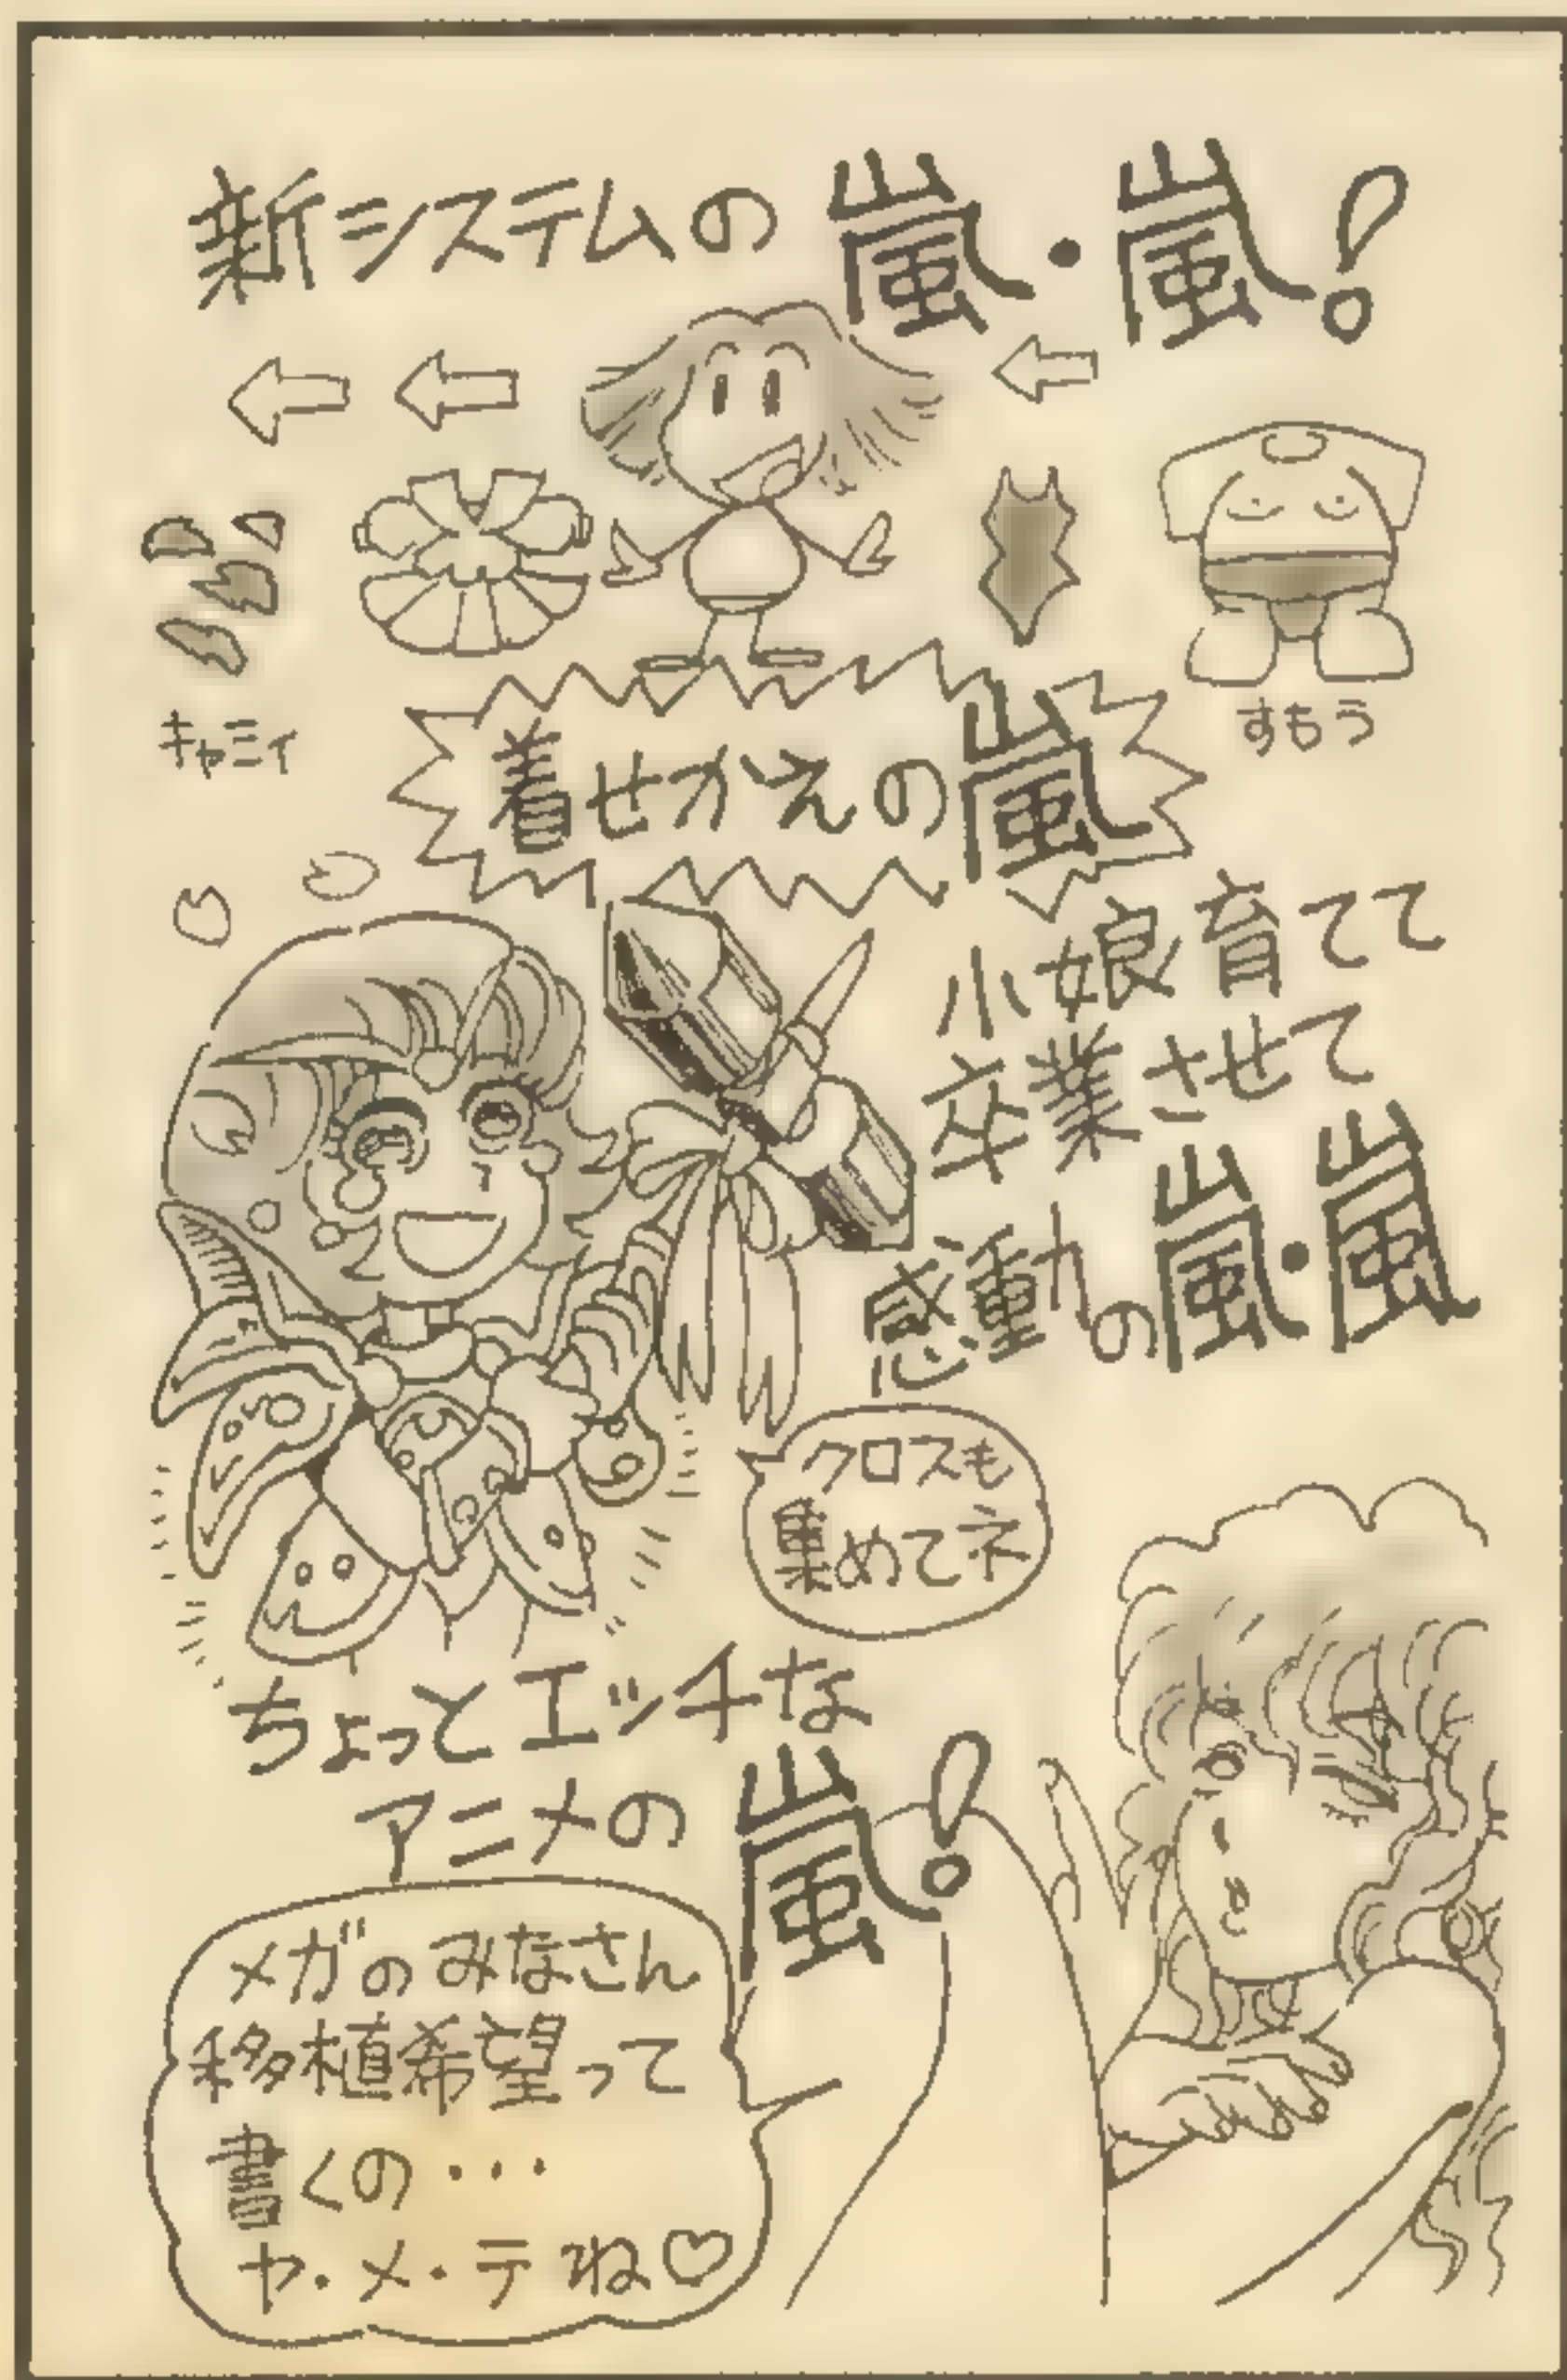 新システムの嵐・嵐!
キャミィ
すもう
着せかえの嵐
小娘育てて
卒業させて
感動の嵐・嵐
クロスも
集めてネ
ちょっとエッチな
アニメの嵐!
メガのみなさん
移植希望って
書くの・・・
ヤ・メ・テね♡